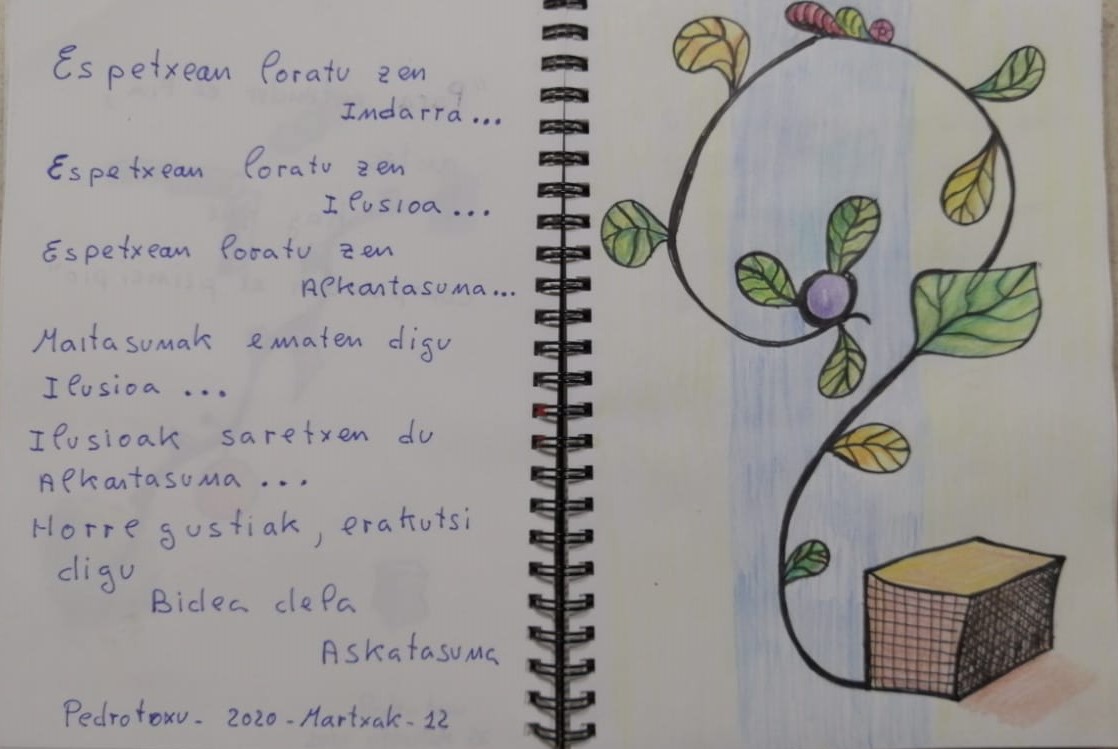 Espetxean loratu zen
Indarra...
Espetxean loratu zen
Ilusioa...
Espetxean loratu zen
Alkartasuna...
Maitasunak ematen digu
Ilusioa...
Ilusioak saretxen du
Alkartasuna...
Horre gustiak, erakutsi
digu
Bidea dela
Askatasuna
Pedrotoxu - 2020 - Martxak - 12